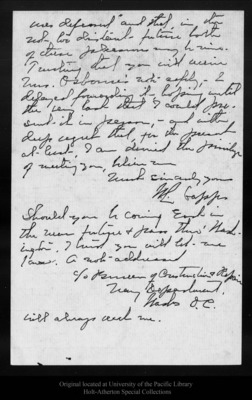 was deferred" and that, in the
not too distant future both
of these pleasures may be mine.
Trusting that you will receive
Mrs. Osborne's note safely, - I
delayed forwarding it hoping until
the last that I would pre-
sent it in person, - and with
deep regret that, for the present
at least, I am denied the privilege
of meeting you, believe me
Most sincerely yours
W. Capps
Should you be coming East in
the near future & pass thro' Wash-
ington, I trust you will let me
know. A note addressed
c/o Bureau of Construction & Repair
Navy Department,
Wash. D.C.
will always reach me.
Original located at University of the Pacific Library
Holt-Atherton Special Collections